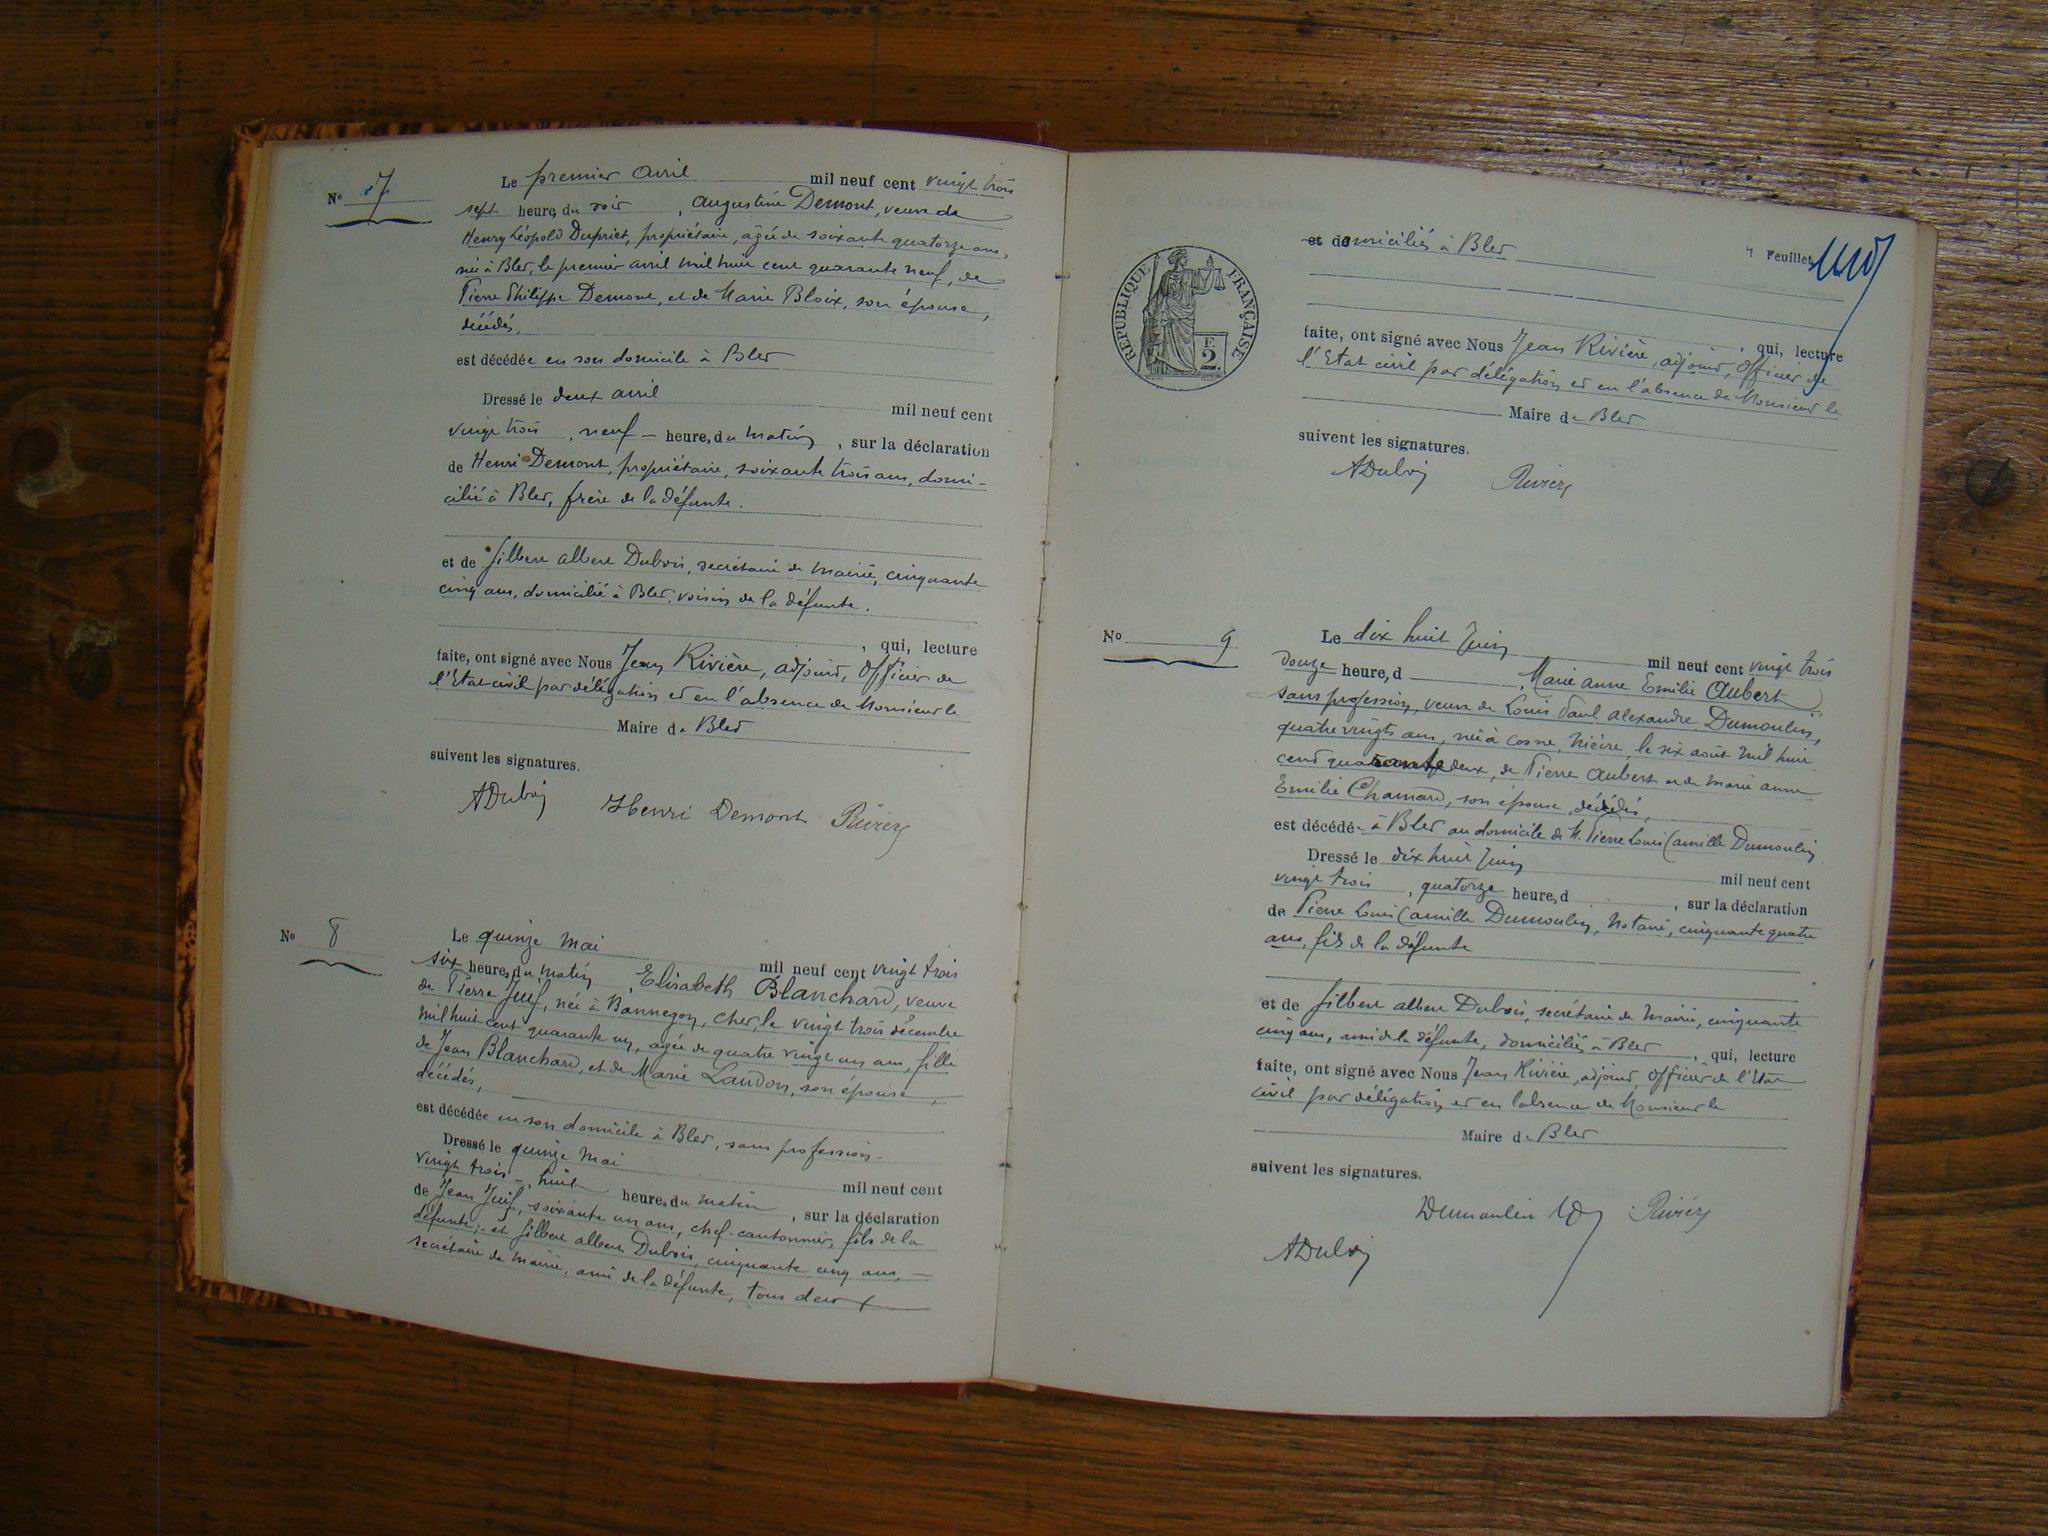 N° 7
Le premier avril mil neuf cent vingt trois
sept heure, du soir, Augustine Demont, veuve de
Henry Léopold Dupriet, propriétaire, âgée de soixante quatorze ans,
née à Blet, le premier avril mil huit cent quarante neuf, de
Pierre Philippe Demont, et de Marie Bloix, son épouse,
décédés,
est décédée en son domicile à Blet
Dressé le deux avril mil neuf cent
vingt trois, neuf heure, du matin, sur la déclaration
de Henri Demont, propriétaire, soixante trois ans, domi-
cilié à Blet, frère de la défunte.
et de Gilbert Albert Dubois, secrétaire de Mairie, cinquante
cinq ans, domicilié à Blet, voisin de la défunte.
, qui, lecture
faite, ont signé avec Nous Jean Rivière, adjoint, Officier de
l'Etat civil par délégation et en l'absence de Monsieur le
Maire de Blet
suivent les signatures.
ADubois Henri Demont Rivière
N° 8
Le quinze Mai mil neuf cent vingt trois
six heures, du matin, Elisabeth Blanchard, veuve
de Pierre Juif, née à Bannegon, Cher, le vingt trois décembre
mil huit cent quarante un, agée de quatre vingt un ans, fille
de Jean Blanchard, et de Marie Laudon, son épouse,
décédés,
est décédée en son domicile à Blet, sans profession.
Dressé le quinze Mai mil neuf cent
vingt trois, huit heures, du matin, sur la déclaration
de Jean Juif, soixante un ans, chef-cantonnier, fils de la
défunte; et Gilbert Albert Dubois, cinquante cinq ans,
secrétaire de Mairie, ami de la défunte, tous deux
et domiciliés à Blet
4 Feuillet
RÉPUBLIQUE FRANÇAISE
F.
2.
, qui, lecture
faite, ont signé avec Nous Jean Rivière, adjoint, Officier de
l'Etat civil par délégation et en l'absence de Monsieur le
Maire de Blet
suivent les signatures.
ADubois Rivière
N° 9
Le dix huit Juin mil neuf cent vingt trois
douze heure, d, Marie Anne Emilie Aubert
sans profession, veuve de Louis Paul Alexandre Dumoulin,
quatre vingts ans, née à Cosne, Nièvre, le six août mil huit
cent quarante deux, de Pierre Aubert et de Marie Anne
Emilie Chamard, son épouse, décédés,
est décédé à Blet au domicile de M. Pierre Louis Camille Dumoulin
Dressé le dix huit Juin mil neuf cent
vingt trois, quatorze heure, d, sur la déclaration
de Pierre Louis Camille Dumoulin, Notaire, cinquante quatre
ans, fils de la défunte
et de Gilbert Albert Dubois, secrétaire de Mairie, cinquante
cinq ans, ami de la défunte, domiciliés à Blet, qui, lecture
faite, ont signé avec Nous Jean Rivière, adjoint, Officier de l'Etat
civil par délégation et en l'absence de Monsieur le
Maire de Blet
suivent les signatures.
Dumoulin Rivière
ADubois